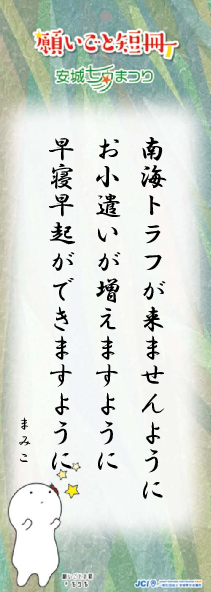 願いごと短冊
安城七夕まつり
南海トラフが来ませんように
お小遣いが増えますように
早寝早起ができますように
まみこ
JCI